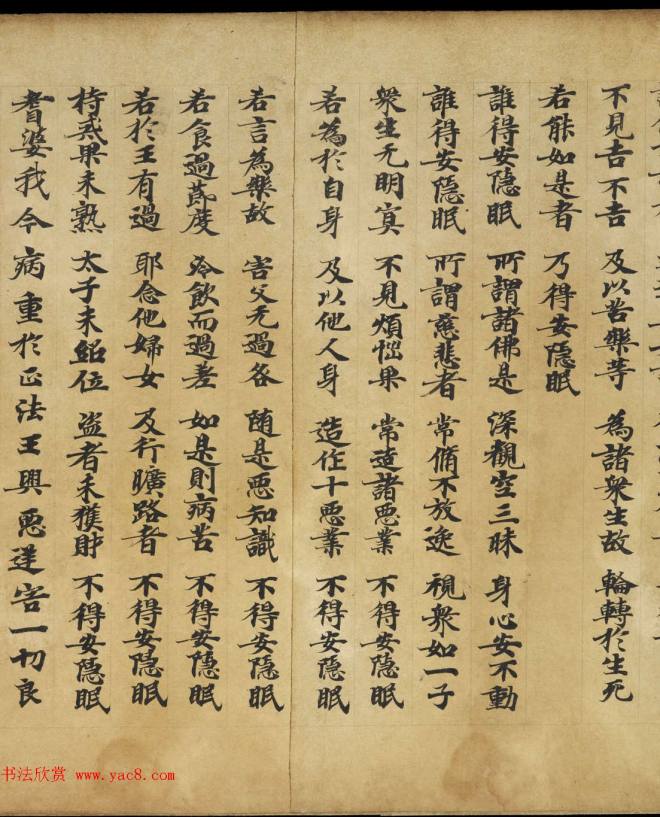 不見吉不吉 及以苦樂等 為諸衆生故 輪轉於生死
若能如是者 乃得安隱眠
誰得安隱眠 所謂諸佛是 深觀空三昧 身心安不動
誰得安隱眠 所謂慈悲者 常脩不放逸 視衆如一子
衆生无明冥 不見煩惱果 常造諸惡業 不得安隱眠
若為於自身 及以他人身 造作十惡業 不得安隱眠
若言為樂故 害父无過各 随是惡知識 不得安隱眠
若食過莭度 冷飲而過差 如是則病苦 不得安隱眠
若於王有過 耶念他婦女 及行曠路者 不得安隱眠
持戒果未熟 太子未紹位 盜者未獲財 不得安隱眠
耆婆我今病重於正法王興惡逆害一切良
书法欣赏 www.yac8.com